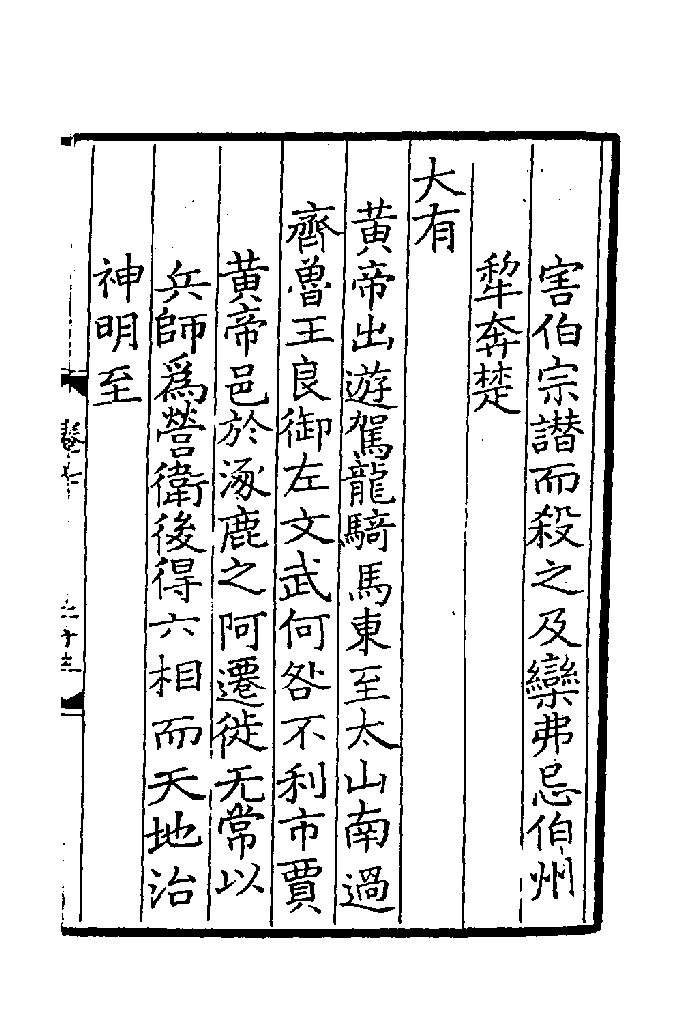 害伯宗譛而殺之及欒弗忌伯州
犂奔楚
大有
黄帝出遊駕龍騎馬東至太山南過
齊魯王良御左文武何咎不利市賈
黄帝邑於涿鹿之阿遷徙无常以
兵師爲營衛後得六相而天地治
神明至